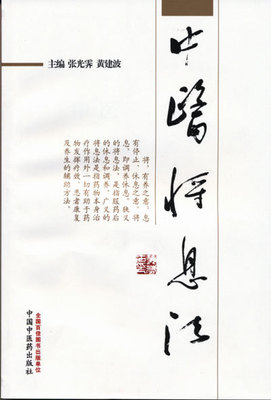 主编 张光霁 黄建波
中醫将息法
将，有养之意；息
有停止、休息之意，将
息，即调养休息。狭义
的将息法，是指服药后
的休息和调养。广义的
将息法是指药物本身治
疗作用外一切有助于药
物发挥疗效、患者康复
及养生的辅助方法。
全国百佳图书出版单位
中国中医药出版社